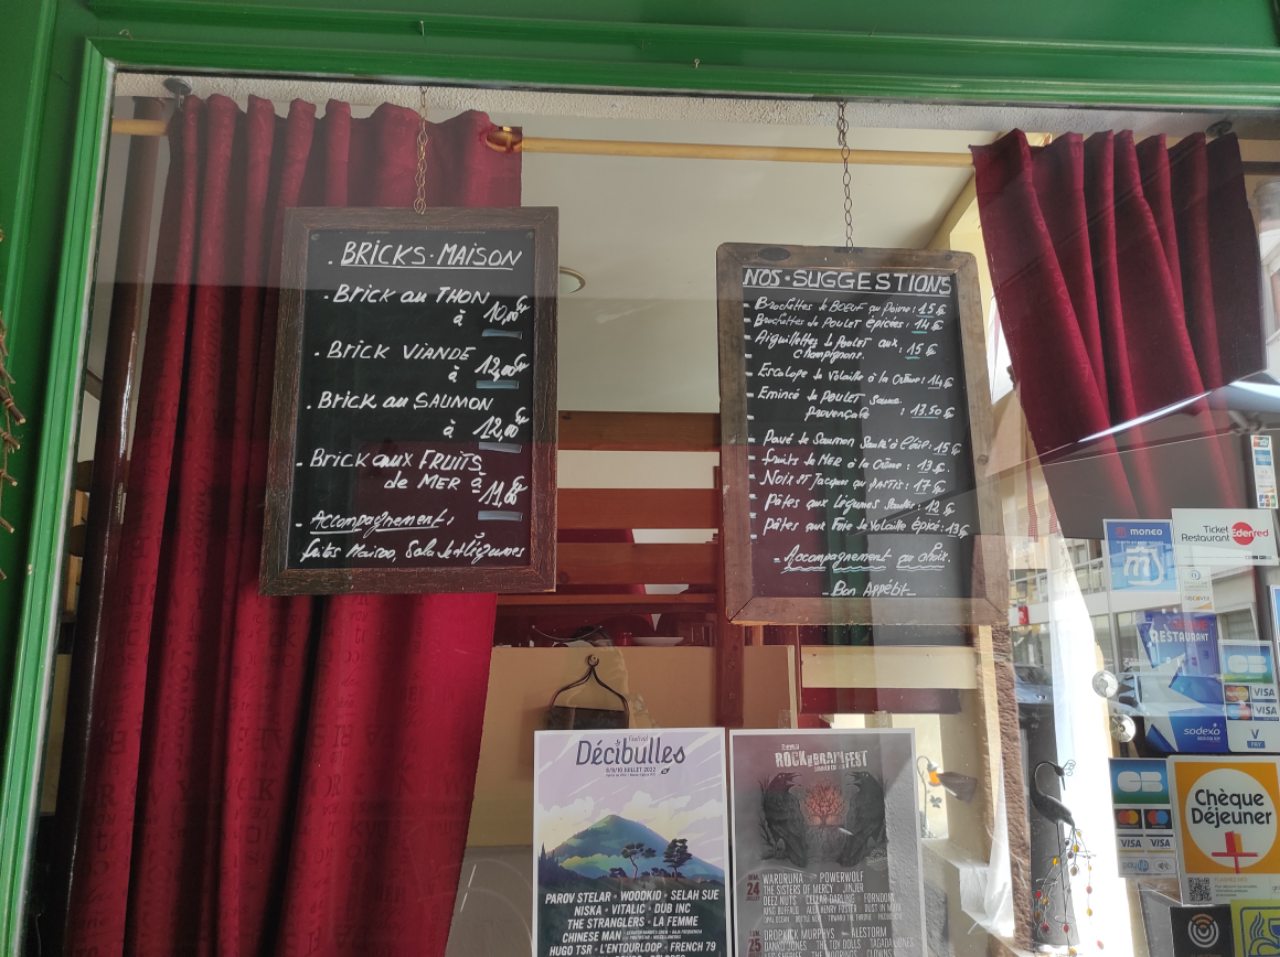 . BRICKS·MAISON
. Brick au THON
à 10,00€
. Brick VIANDE
à 12,00€
. Brick au SAUMON
à 12,00€
. Brick aux FRUITS
de MER à 11,00€
- Accompagnement:
frites Maison, Salade+légumes
NOS·SUGGESTIONS
- Brochettes de BOEUF au Poivre: 15€
- Brochettes de POULET épicées: 14€
- Aiguillettes de Poulet aux
champignons. : 15€
- Escalope de Volaille à la Crème: 14€
- Emincé de POULET Sauce
provençale : 13.50€
- Pavé de Saumon Sauté à l'ail: 15€
- fruits de MER à la Crème: 13€
- Noix ST Jacques au PASTIS: 17€
- pâtes aux Légumes Sautés: 12€
- pâtes aux Foie de Volaille épicé: 13€
- Accompagnement au choix.
- Bon Appétit -
Festival
Décibulles
8/9/10 JUILLET 2022
PAROV STELAR • WOODKID • SELAH SUE
NISKA • VITALIC • DUB INC
THE STRANGLERS • LA FEMME
CHINESE MAN
HUGO TSR • L'ENTOURLOOP • FRENCH 79
ROCK YOUR BRAIN FEST
24
WARDRUNA POWERWOLF
THE SISTERS OF MERCY JINJER
DEEZ NUTS CELLAR DARLING
KING BUFFALO
25
DROPKICK MURPHYS ALESTORM
DANKO JONES THE TOY DOLLS TAGADA JONES
moneo
Ticket
Restaurant Edenred
DISCOVER
RESTAURANT
sodexo
CB
VISA
VISA
V
PAY
CB
VISA VISA
Chèque
Déjeuner